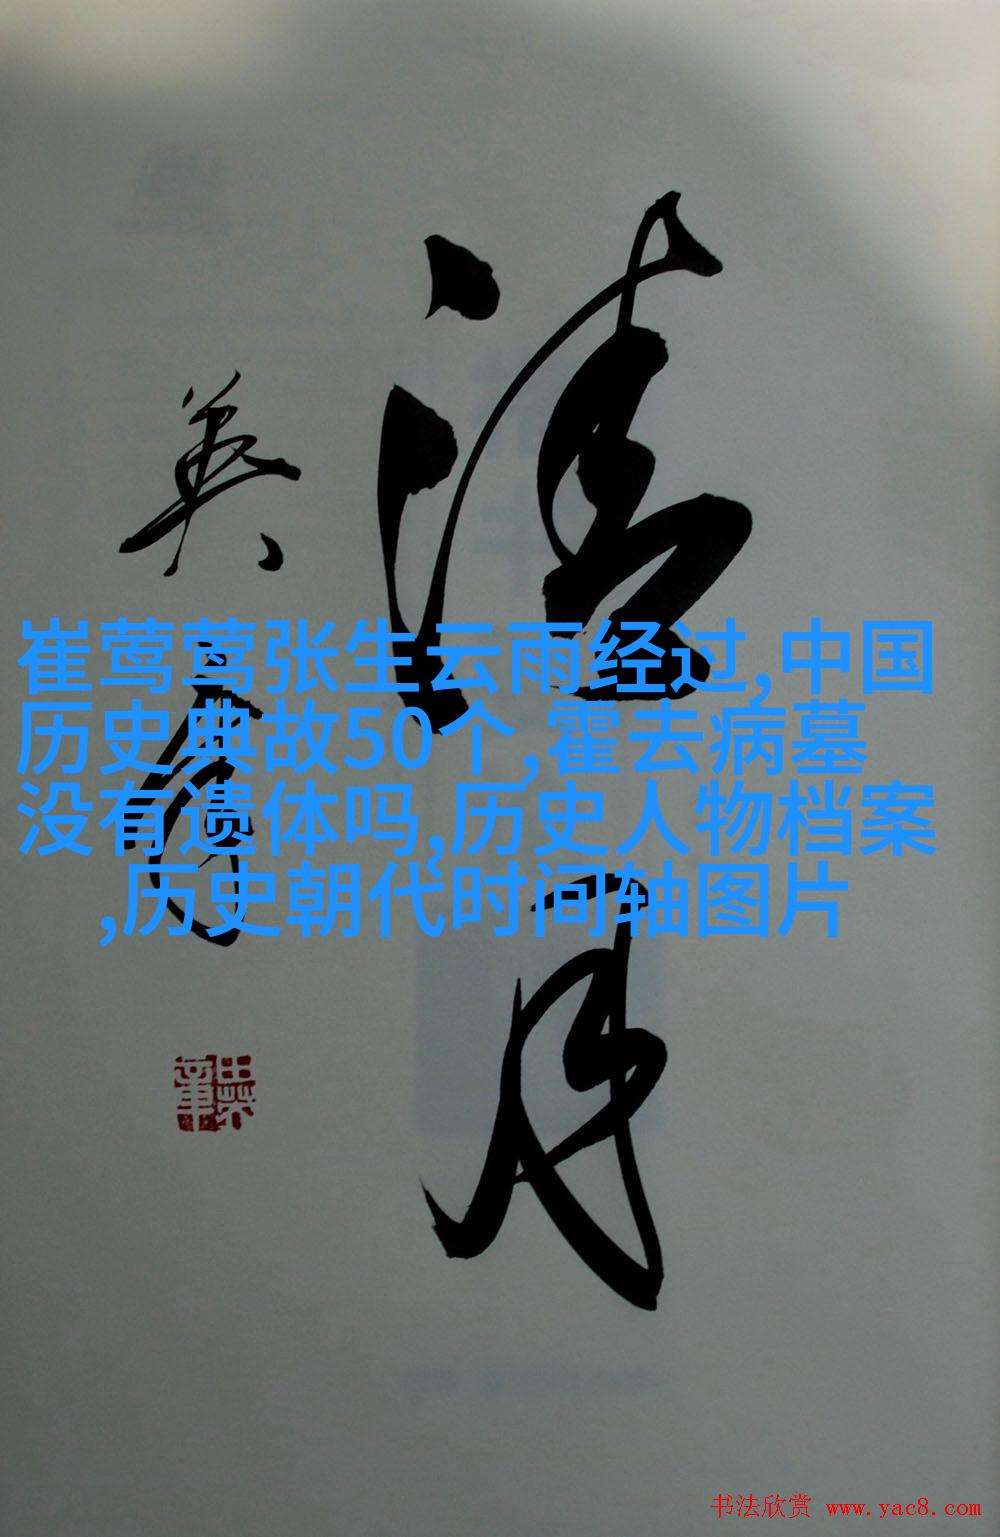 清月
英章
崔莺莺张生云雨经过,中国
历史典故50个,霍去病墓
没有遗体吗,历史人物档案
,历史朝代时间轴图片
书法欣赏 www.yac8.com